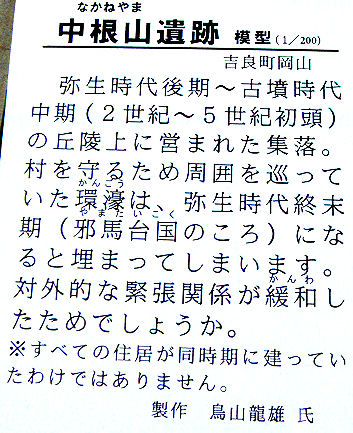 なかねやま
中根山遺跡 模型(1/200)
吉良町岡山
弥生時代後期～古墳時代
中期(2世紀～5世紀初頭)
の丘陵上に営まれた集落。
村を守るため周囲を巡って
かんごう
いた環濠は、弥生時代終末
やまたいこく
期(邪馬台国のころ)にな
ると埋まってしまいます。
かんわ
対外的な緊張関係が緩和し
たためでしょうか。
※すべての住居が同時期に建ってい
たわけではありません。
製作 鳥山龍雄 氏